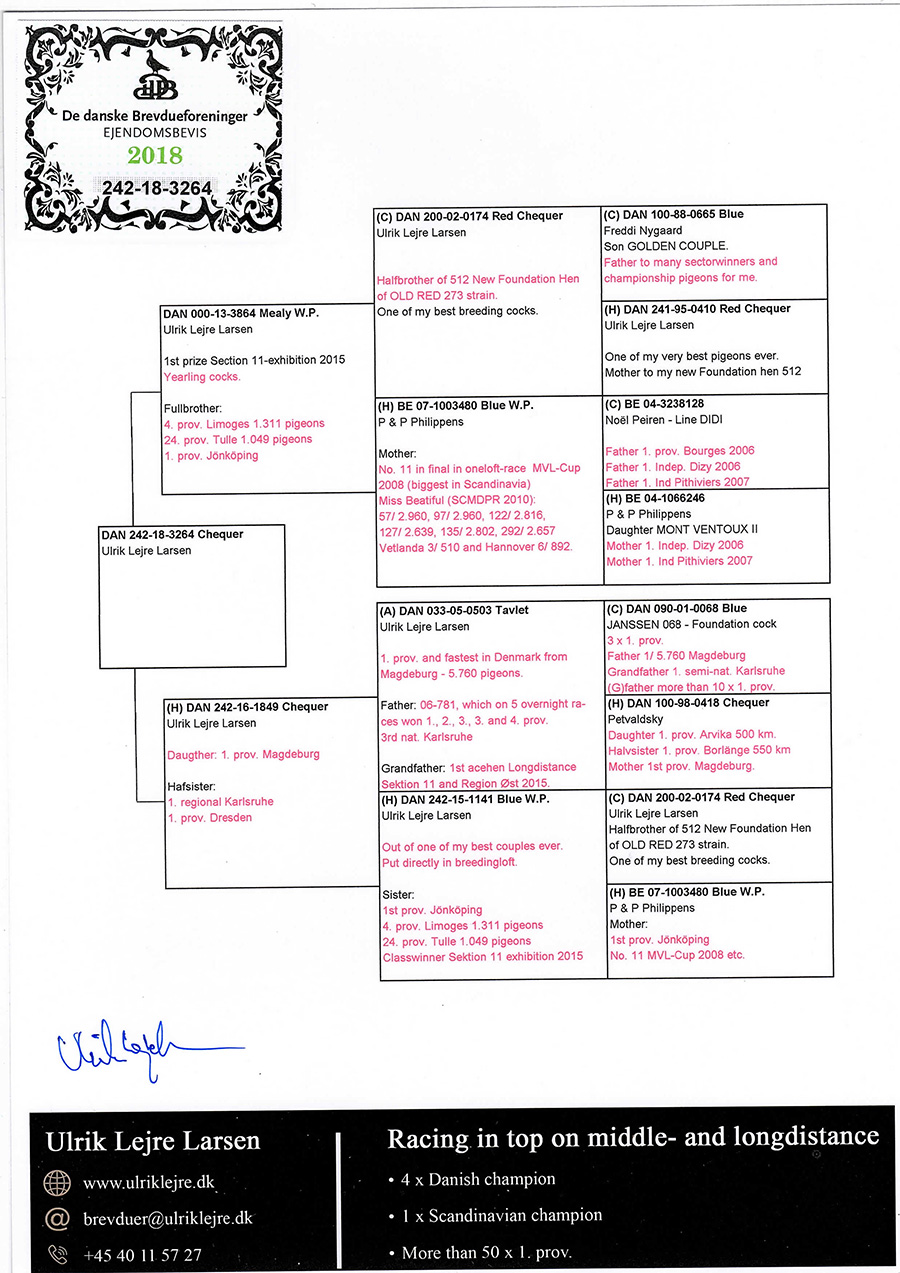 De danske Brevdueforeninger
EJENDOMSBEVIS
2018
242-18-3264
DAN 242-18-3264 Chequer
Ulrik Lejre Larsen
DAN 000-13-3864 Mealy W.P.
Ulrik Lejre Larsen
1st prize Section 11-exhibition 2015
Yearling cocks.
Fullbrother:
4. prov. Limoges 1.311 pigeons
24. prov. Tulle 1.049 pigeons
1. prov. Jönköping
(H) DAN 242-16-1849 Chequer
Ulrik Lejre Larsen
Daugther: 1. prov. Magdeburg
Hafsister:
1. regional Karlsruhe
1. prov. Dresden
(C) DAN 200-02-0174 Red Chequer
Ulrik Lejre Larsen
Halfbrother of 512 New Foundation Hen
of OLD RED 273 strain.
One of my best breeding cocks.
(H) BE 07-1003480 Blue W.P.
P & P Philippens
Mother:
No. 11 in final in oneloft-race MVL-Cup
2008 (biggest in Scandinavia)
Miss Beatiful (SCMDPR 2010):
57/ 2.960, 97/ 2.960, 122/ 2.816,
127/ 2.639, 135/ 2.802, 292/ 2.657
Vetlanda 3/ 510 and Hannover 6/ 892.
(A) DAN 033-05-0503 Tavlet
Ulrik Lejre Larsen
1. prov. and fastest in Denmark from
Magdeburg - 5.760 pigeons.
Father: 06-781, which on 5 overnight ra-
ces won 1., 2., 3., 3. and 4. prov.
3rd nat. Karlsruhe
Grandfather: 1st acehen Longdistance
Sektion 11 and Region Øst 2015.
(H) DAN 242-15-1141 Blue W.P.
Ulrik Lejre Larsen
Out of one of my best couples ever.
Put directly in breedingloft.
Sister:
1st prov. Jönköping
4. prov. Limoges 1.311 pigeons
24. prov. Tulle 1.049 pigeons
Classwinner Sektion 11 exhibition 2015
(C) DAN 100-88-0665 Blue
Freddi Nygaard
Son GOLDEN COUPLE.
Father to many sectorwinners and
championship pigeons for me.
(H) DAN 241-95-0410 Red Chequer
Ulrik Lejre Larsen
One of my very best pigeons ever.
Mother to my new Foundation hen 512
(C) BE 04-3238128
Noël Peiren - Line DIDI
Father 1. prov. Bourges 2006
Father 1. Indep. Dizy 2006
Father 1. Ind Pithiviers 2007
(H) BE 04-1066246
P & P Philippens
Daughter MONT VENTOUX II
Mother 1. Indep. Dizy 2006
Mother 1. Ind Pithiviers 2007
(C) DAN 090-01-0068 Blue
JANSSEN 068 - Foundation cock
3 x 1. prov.
Father 1/ 5.760 Magdeburg
Grandfather 1. semi-nat. Karlsruhe
(G)father more than 10 x 1. prov.
(H) DAN 100-98-0418 Chequer
Petvaldsky
Daughter 1. prov. Arvika 500 km.
Halvsister 1. prov. Borlänge 550 km
Mother 1st prov. Magdeburg.
(C) DAN 200-02-0174 Red Chequer
Ulrik Lejre Larsen
Halfbrother of 512 New Foundation Hen
of OLD RED 273 strain.
One of my best breeding cocks.
(H) BE 07-1003480 Blue W.P.
P & P Philippens
Mother:
1st prov. Jönköping
No. 11 MVL-Cup 2008 etc.
Ulrik Lejre Larsen
www.ulriklejre.dk
brevduer@ulriklejre.dk
+45 40 11 57 27
Racing in top on middle- and longdistance
• 4 x Danish champion
• 1 x Scandinavian champion
• More than 50 x 1. prov.